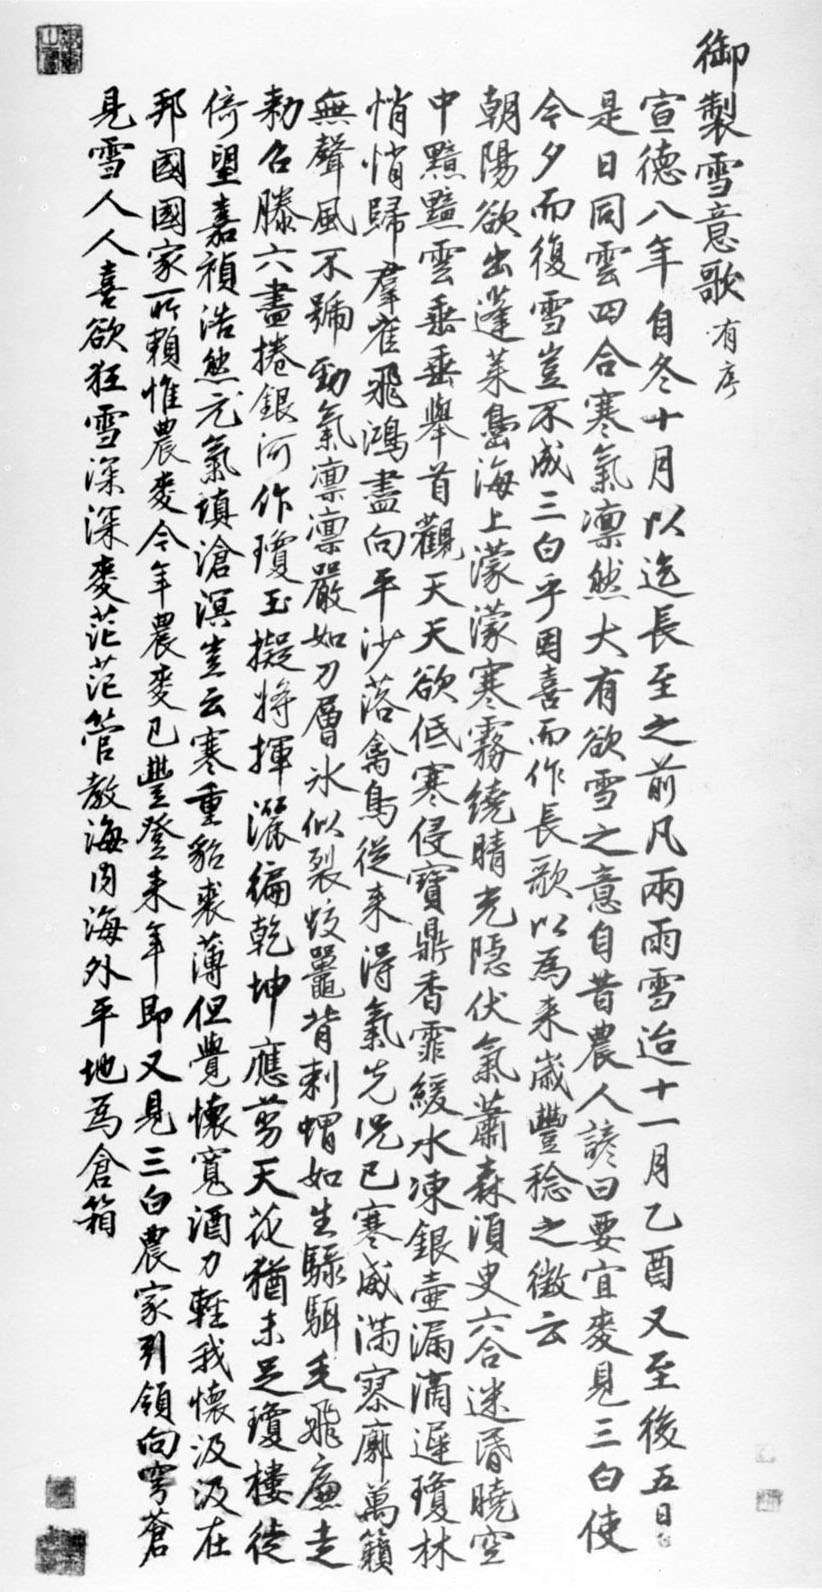 御製雪意歌 有序
宣德八年自冬十月以迄長至之前凡兩雨雪迨十一月乙酉又至後五日
是日同雲四合寒氣凛然大有欲雪之意自昔農人諺曰要宜麥見三白使
今夕而復雪豈不成三白乎因喜而作長歌以為来歲豐稔之徵云
朝陽欲出蓬莱島海上濛濛寒霧繞晴光隱伏氣蕭森須臾六合迷昏曉空
中黯黯雲垂垂舉首觀天天欲低寒侵寶鼎香霏緩水凍銀壺漏滴遲瓊林
悄悄歸群雀飛鴻盡向平沙落禽鳥從来得氣先况已寒威滿寥廓萬籟
無聲風不號勁氣凛凛嚴如刀層氷似裂蛟鼉背刺蝟如生騄駬毛飛廉走
勅召滕六盡捲銀河作瓊玉擬將揮灑徧乾坤應剪天花猶未足瓊樓徙
倚望嘉禎浩然元氣填滄溟豈云寒重貂裘薄但覺懷寬酒力輕我懷汲汲在
邦國國家所賴惟農麥今年農麥已豐登来年即又見三白農家引領向穹蒼
見雪人人喜欲狂雪深深麥茫茫管教海内海外平地為倉箱